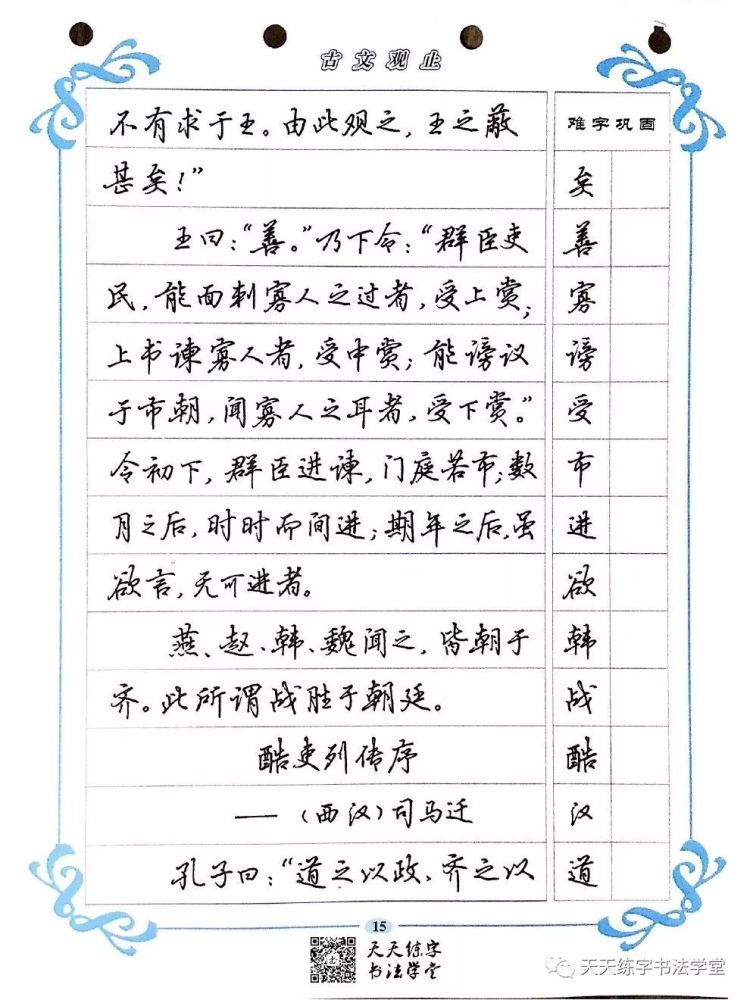 古文观止
不有求于王。由此观之，王之蔽
难字巩固
甚矣！”
矣
王曰：“善。”乃下令：“群臣吏
善
民，能面刺寡人之过者，受上赏；
寡
上书谏寡人者，受中赏；能谤议
谤
于市朝，闻寡人之耳者，受下赏。”
受
令初下，群臣进谏，门庭若市；数
市
月之后，时时而间进；期年之后，虽
进
欲言，无可进者。
欲
燕、赵、韩、魏闻之，皆朝于
韩
齐。此所谓战胜于朝廷。
战
酷吏列传序
酷
——（西汉）司马迁
汉
孔子曰：“道之以政，齐之以
道
15
天天练字
书法学堂
天天练字书法学堂